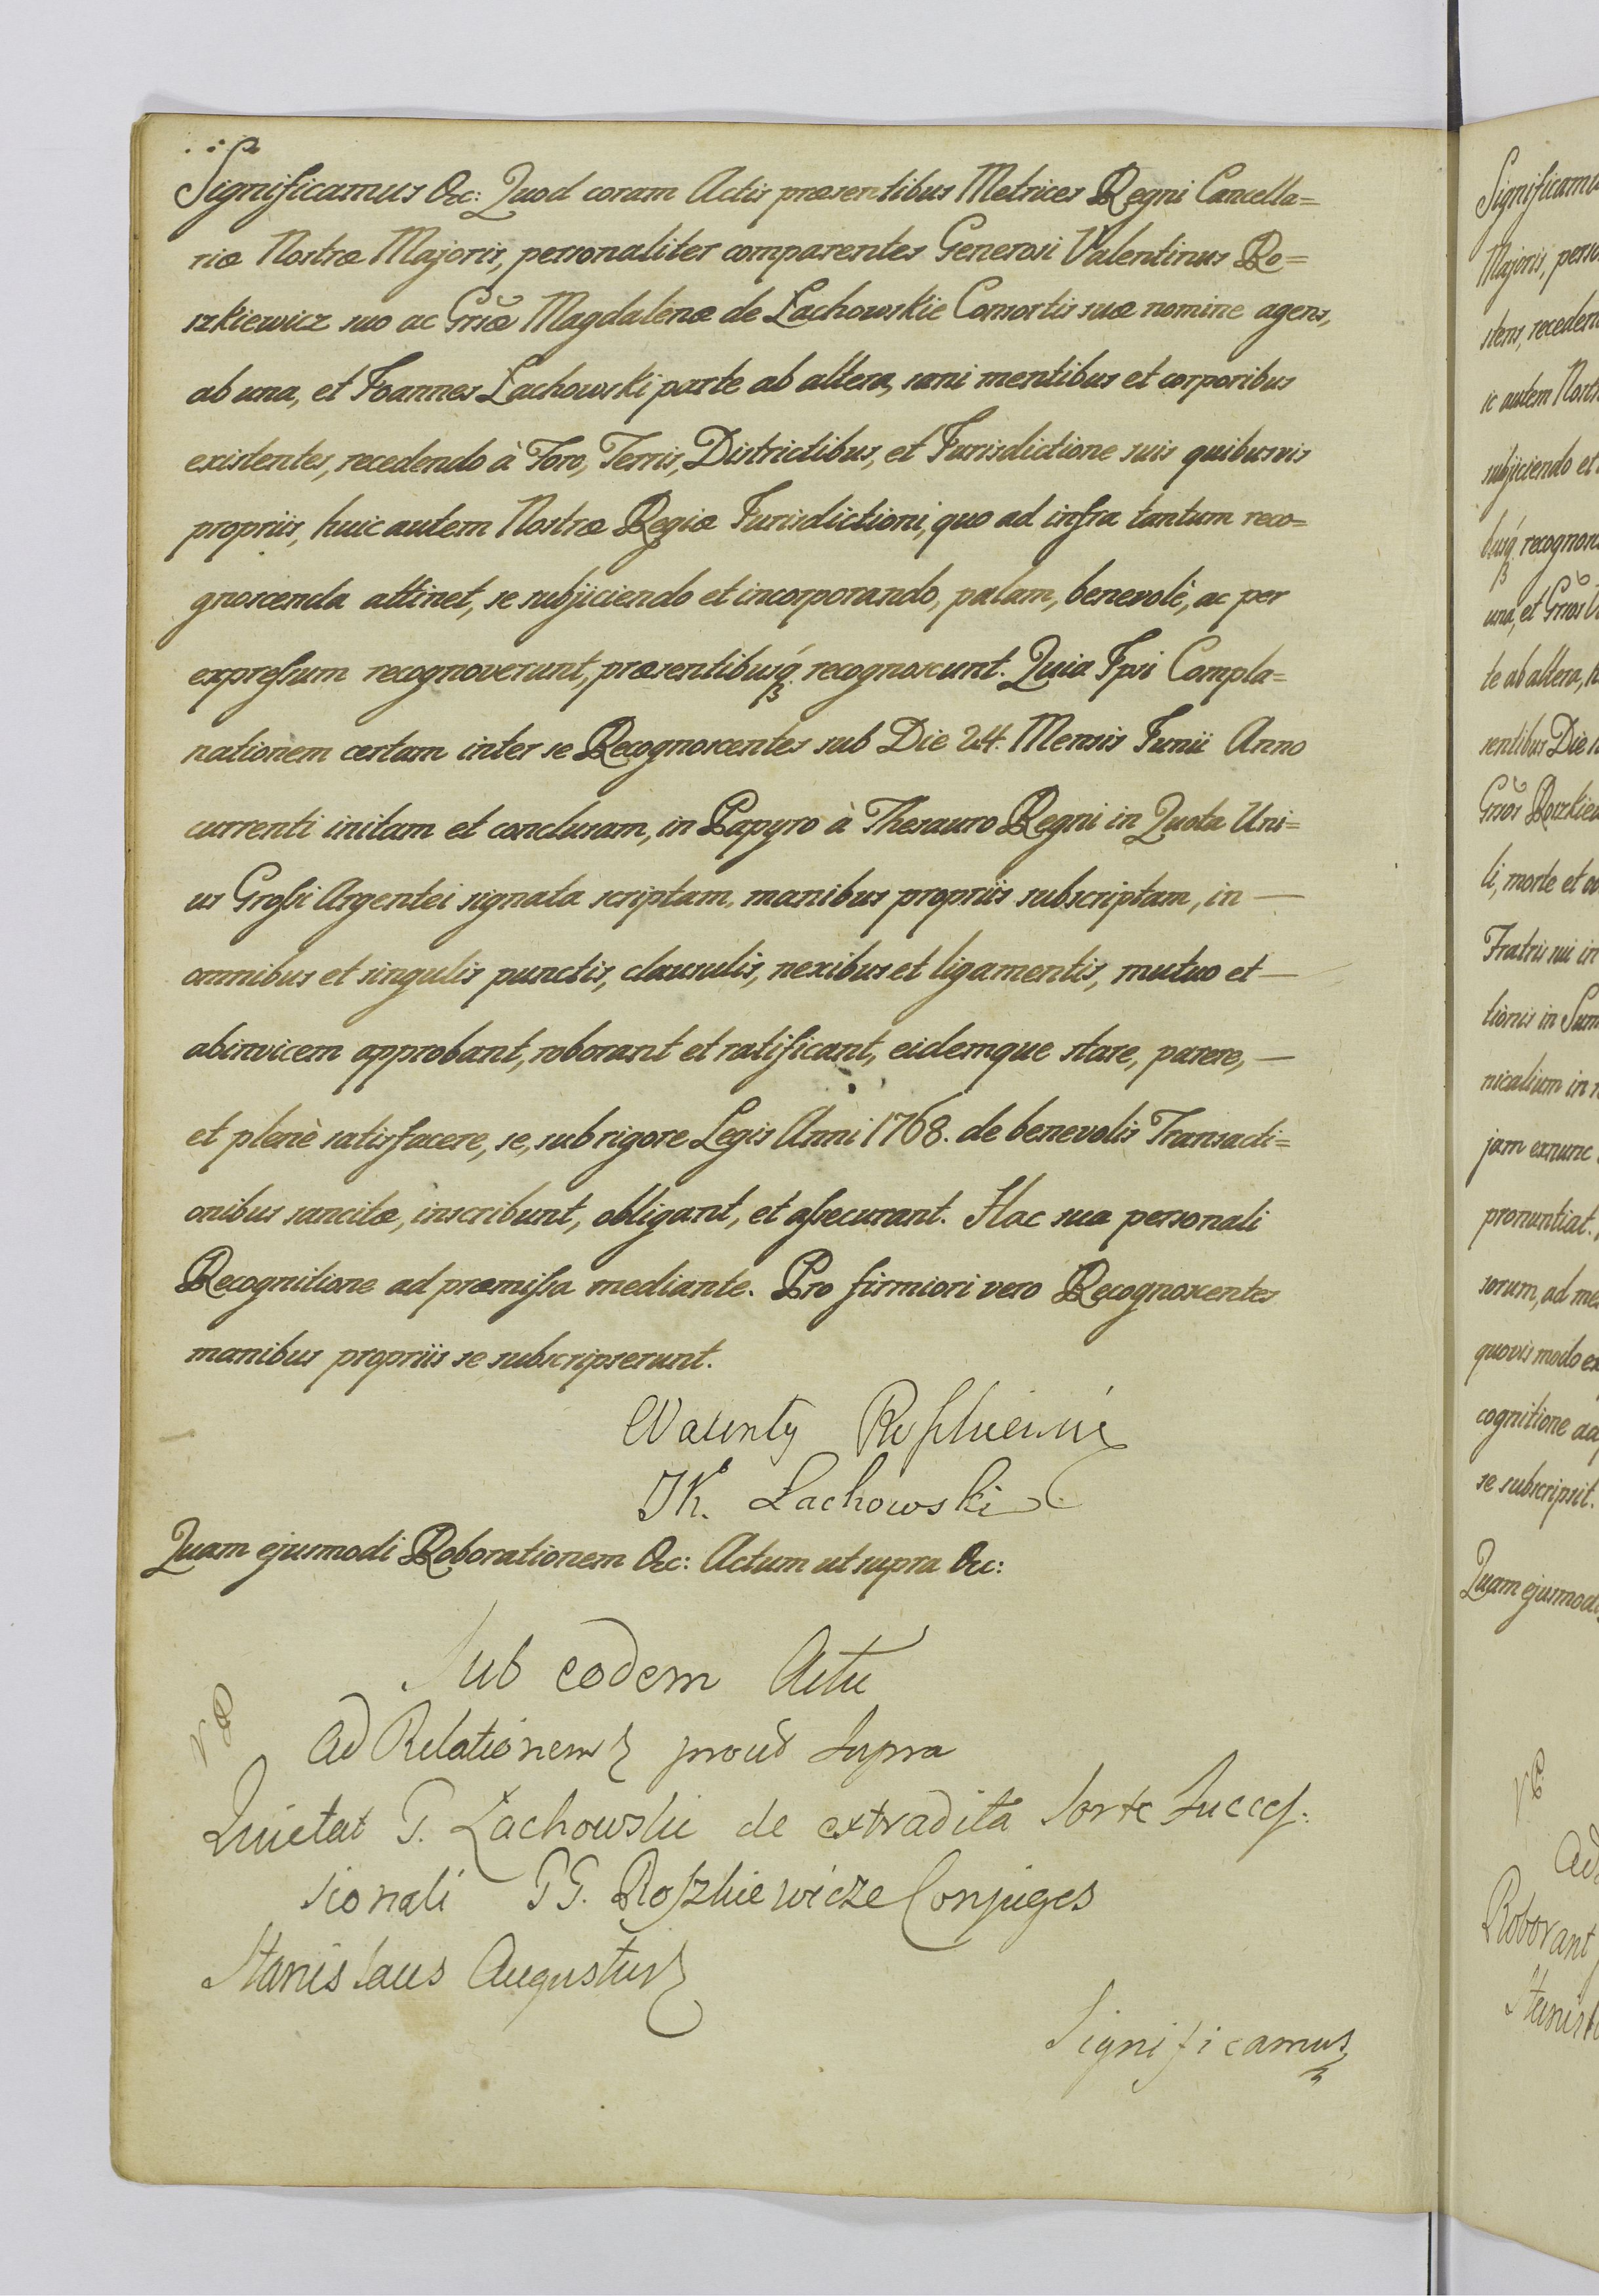 Significamus &c: Quod coram Actis præsentibus Metrices Regni Cancella=
riæ Nostræ Majoris, personaliter comparentes Generosi Valentinus Ro=
szkiewicz suo ac Grsæ Magdalenæ de Lachowskie Consortis suæ nomine agens,
ab una, et Joannes Lachowski parte ab altera, sani mentibus et corporibus
existentes, recedendo à Foro, Terris, Districtibus, et Jurisdictione suis quibusvis
propriis, huic autem Nostræ Regiæ Jurisdictioni, quo ad infra tantum reco=
gnoscenda attinet, se subjiciendo et incorporando, palam, benevolè, ac per
expreſsum recognoverunt, præsentibusq́ recognoscunt. Quia Ipsi Compla=
nationem certam inter se Recognoscentes sub Die 24. Mensis Junii Anno
currenti initam et conclusam, in Papyro à Thesauro Regni in Quota Uni=
us Groſsi Argentei signata scriptam, manibus propriis subscriptam, in —
omnibus et singulis punctis, clausulis, nexibus et ligamentis, mutuo et —
abinvicem approbant, roborant et ratificant, eidemque stare, parere, —
et plenè satisfacere, se, sub rigore Legis Anni 1768. de benevolis Transacti=
onibus sancitæ, inscribunt, obligant, et aſsecurant. Hac sua personali
Recognitione ad præmiſsa mediante. Pro firmiori vero Recognoscentes
manibus propriis se subscripserunt.
Walenty
JK. Lachowski
Quam ejusmodi Roborationem &c: Actum ut supra &c:
Sub eodem Actu
Ad Relationem prout supra
Quietat G. Lachowski de extradita sorte Succeſ:
sionali GG. Roſzkiewicze Conjuges
Stanislaus Augustus
Significamus
Significamu
Majoris, perso
stens, receden
ic autem Nostr
subjiciendo et
busq́ recognosc
una, et Grsos V
te ab altera, h
sentibus Die
Grsos Roszkiew
li, morte et
Fratris sui in
tionis in Sum
nicalium in
jam exnunc
pronuntiat.
sorum, ad me
quovis modo ex
cognitione ad
se subscripsit.
Quam ejusmodi
Ad
Roborant
Stanisl